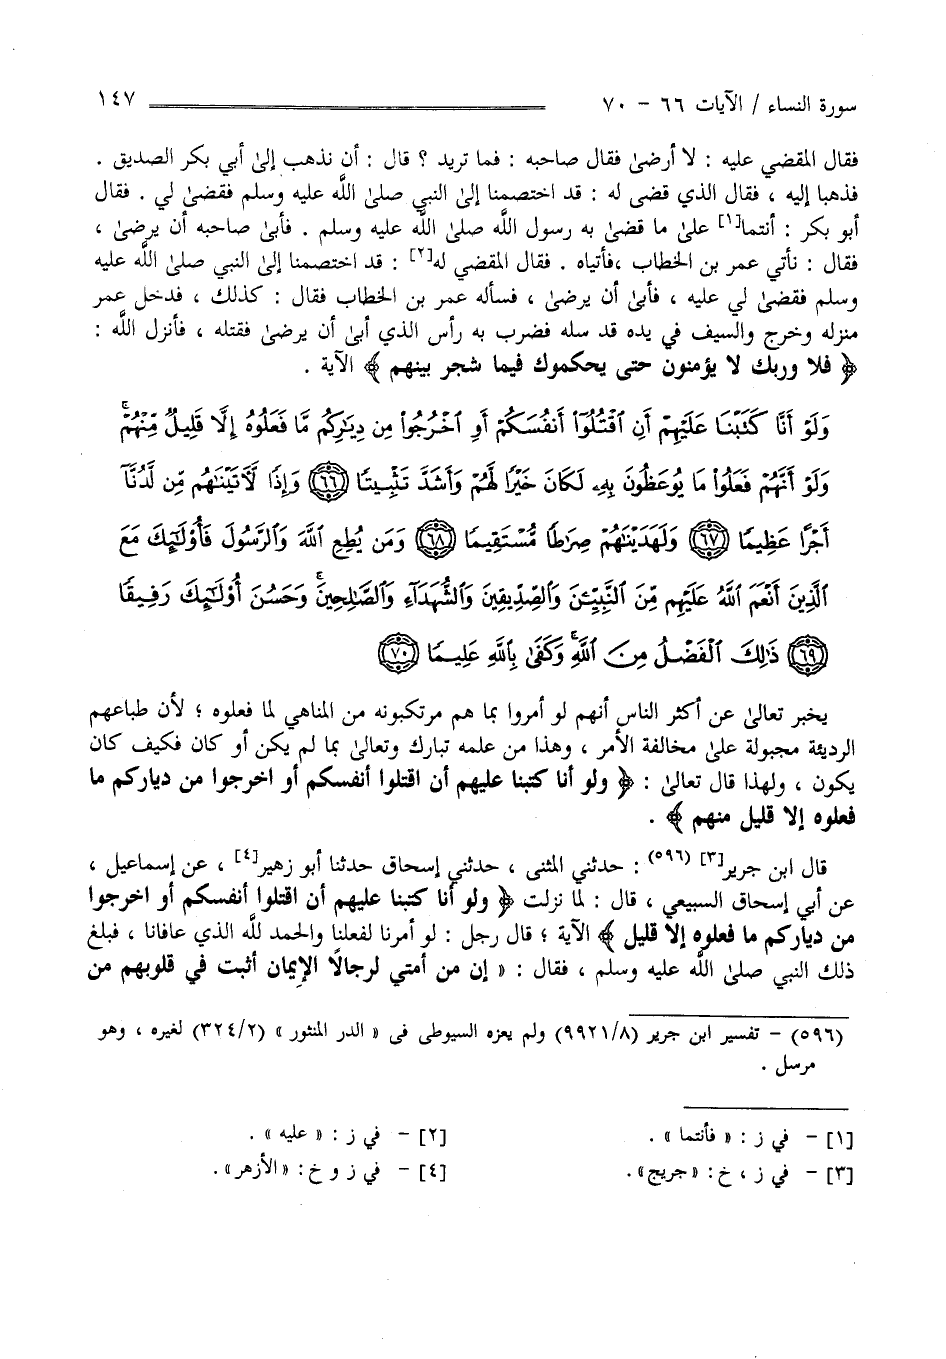 سورة النساء / الآيات ٦٦ - ٧٠ ١٤٧
فقال المقضي عليه : لا أرضىٰ فقال صاحبه : فما تريد ؟ قال : أن نذهب إلىٰ أبي بكر الصديق .
فذهبا إليه ، فقال الذي قضى له : قد اختصمنا إلىٰ النبي صلىٰ اللَّه عليه وسلم فقضىٰ لي . فقال
أبو بكر : أنتما[١] علىٰ ما قضىٰ به رسول اللَّه صلىٰ اللَّه عليه وسلم . فأبىٰ صاحبه أن يرضىٰ ،
فقال : نأتي عمر بن الخطاب ،فأتياه . فقال المقضي له[٢] : قد اختصمنا إلىٰ النبي صلىٰ اللَّه عليه
وسلم فقضىٰ لي عليه ، فأبىٰ أن يرضىٰ ، فسأله عمر بن الخطاب فقال : كذلك ، فدخل عمر
منزله وخرج والسيف في يده قد سله فضرب به رأس الذي أبىٰ أن يرضىٰ فقتله ، فأنزل اللَّه :
﴿ فلا وربك لا يؤمنون حتى يحكموك فيما شجر بينهم ﴾ الآية .
وَلَوْ أَنَّا كَتَبْنَا عَلَيْهِمْ أَنِ ٱقْتُلُوٓا۟ أَنفُسَكُمْ أَوِ ٱخْرُجُوا۟ مِن دِيَٰرِكُم مَّا فَعَلُوهُ إِلَّا قَلِيلٌ مِّنْهُمْ ۖ
وَلَوْ أَنَّهُمْ فَعَلُوا۟ مَا يُوعَظُونَ بِهِۦ لَكَانَ خَيْرًا لَّهُمْ وَأَشَدَّ تَثْبِيتًا ﴿٦٦﴾ وَإِذًا لَّأَتَيْنَٰهُم مِّن لَّدُنَّآ
أَجْرًا عَظِيمًا ﴿٦٧﴾ وَلَهَدَيْنَٰهُمْ صِرَٰطًا مُّسْتَقِيمًا ﴿٦٨﴾ وَمَن يُطِعِ ٱللَّهَ وَٱلرَّسُولَ فَأُو۟لَٰٓئِكَ مَعَ
ٱلَّذِينَ أَنْعَمَ ٱللَّهُ عَلَيْهِم مِّنَ ٱلنَّبِيِّۦنَ وَٱلصِّدِّيقِينَ وَٱلشُّهَدَآءِ وَٱلصَّٰلِحِينَ ۚ وَحَسُنَ أُو۟لَٰٓئِكَ رَفِيقًا
﴿٦٩﴾ ذَٰلِكَ ٱلْفَضْلُ مِنَ ٱللَّهِ ۚ وَكَفَىٰ بِٱللَّهِ عَلِيمًا ﴿٧٠﴾
يخبر تعالىٰ عن أكثر الناس أنهم لو أمروا بما هم مرتكبونه من المناهي لما فعلوه ؛ لأن طباعهم
الرديئة مجبولة علىٰ مخالفة الأمر ، وهذا من علمه تبارك وتعالىٰ بما لم يكن أو كان فكيف كان
يكون ، ولهذا قال تعالىٰ : ﴿ ولو أنا كتبنا عليهم أن اقتلوا أنفسكم أو اخرجوا من دياركم ما
فعلوه إلا قليل منهم ﴾ .
قال ابن جرير[٣] (٥٩٦) : حدثني المثنى ، حدثني إسحاق حدثنا أبو زهير[٤] ، عن إسماعيل ،
عن أبي إسحاق السبيعي ، قال : لما نزلت ﴿ ولو أنا كتبنا عليهم أن اقتلوا أنفسكم أو اخرجوا
من دياركم ما فعلوه إلا قليل ﴾ الآية ؛ قال رجل : لو أمرنا لفعلنا والحمد للَّه الذي عافانا ، فبلغ
ذلك النبي صلىٰ اللَّه عليه وسلم ، فقال : « إن من أمتي لرجالًا الإيمان أثبت في قلوبهم من
(٥٩٦) - تفسير ابن جرير (٩٩٢١/٨) ولم يعزه السيوطى فى « الدر المنثور » (٣٢٤/٢) لغيره ، وهو
مرسل .
[١] - في ز : « فأنتما » . [٢] - في ز : « عليه » .
[٣] - في ز ، خ : «جريج» . [٤] - في ز و خ : «الأزهر» .